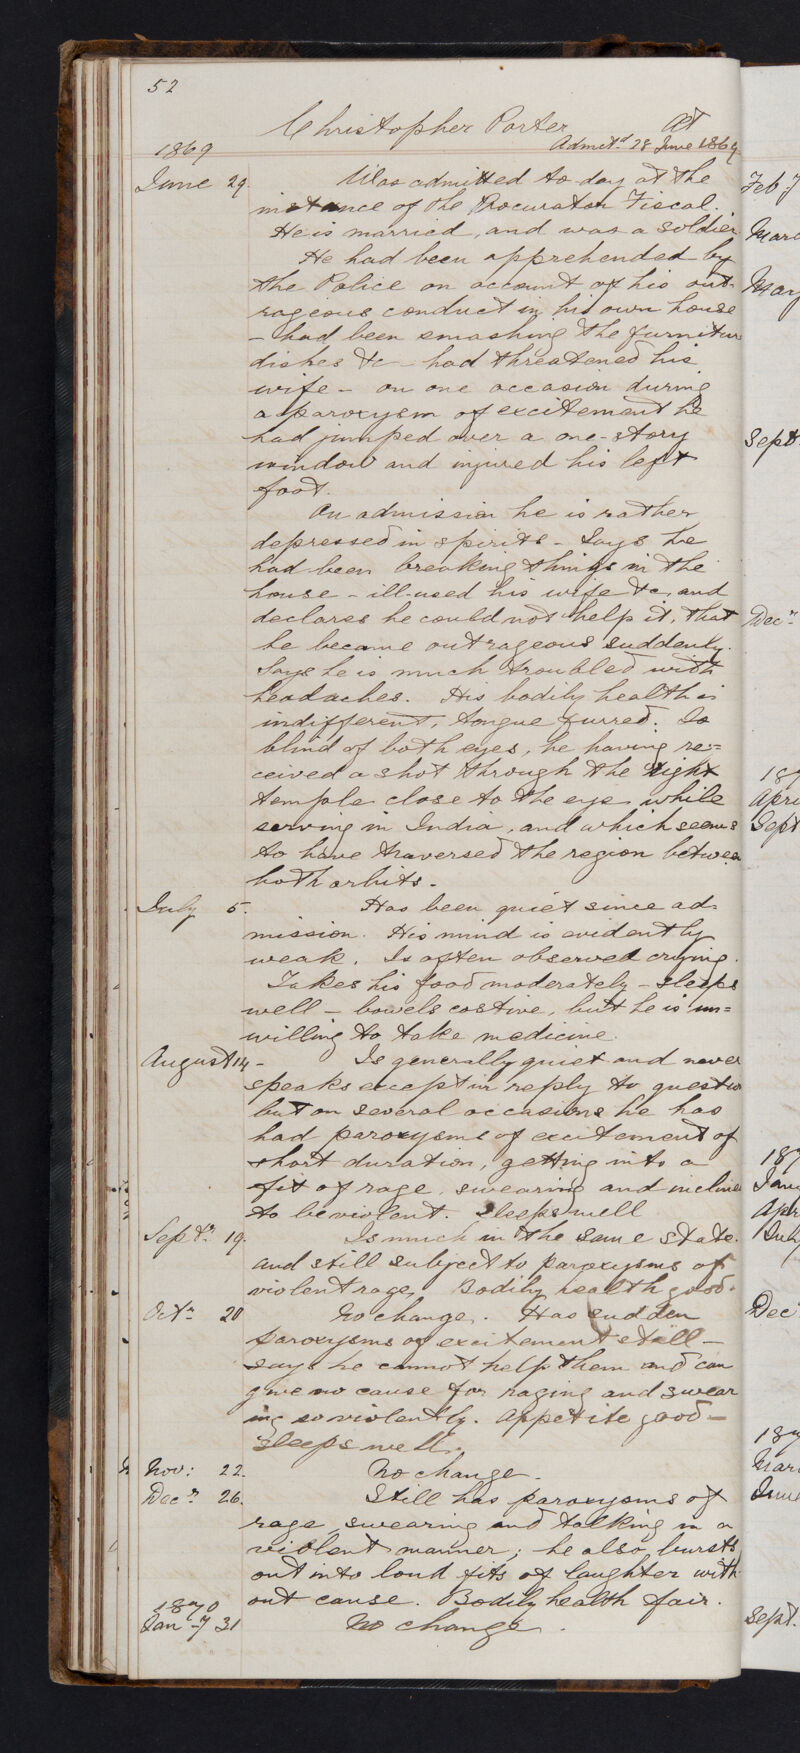 52
Christopher Porter Æt
1869 Admitd 28 June 1869
June 29. Was admitted to-day at the
instance of the Procurator Fiscal.
He is married, and was a soldier
He had been apprehended by
the Police on account of his out-
rageous conduct in his own house
- had been smashing the furniture
dishes &c - had threatened his
wife - on one occasion during
a paroxysm of excitement he
had jumped over a one-story
window and injured his left
foot.
On admission he is rather
depressed in spirits - Says he
had been breaking things in the
house - ill-used his wife &c, and
declares he could not help it, that
he became outrageous suddenly.
Says he is much troubled with
headaches. His bodily health is
indifferent, tongue furred. Is
blind of both eyes, he having re=
ceived a shot through the right
temple close to the eye while
serving in India, and which seems
to have traversed the region between
both orbits.
July 5. Has been quiet since ad-
mission. His mind is evidently
weak. Is often observed crying.
Takes his food moderately - sleeps
well - bowels costive, but he is un=
willing to take medicine.
August 14 - Is generally quiet and never
speaks except in reply to questio
but on several occasions he has
had paroxysms of excitement of
short duration, getting into a
fit of rage, swearing and incline
to be violent. Sleeps well
Septr 19. Is much in the same state.
and still subject to paroxysms of
violent rage. Bodily health good.
Octr 20 No change. Has sudden
paroxysms of excitement still -
says he cannot help them and can
give no cause for raging and swear
ing so violently. Appetite good -
Sleeps well.
Nov: 22. No change.
Decr 26. Still has paroxysms of
rage, swearing and talking in a
violent manner; he also bursts
out into loud fits of laughter with
out cause. Bodily health fair.
1870
Jany 31 No change.
Feb y
Marc
May
Sept
Decr
187
Apri
Sept
187
Janu
Apr
July
Dec
187
Mar
June
Sept.